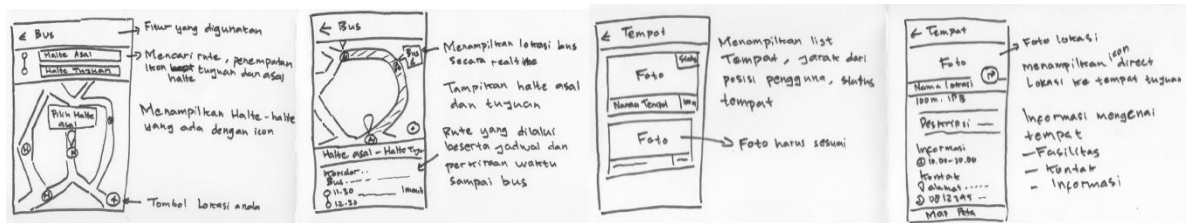 ← Bus
Halte Asal
Halte Tujuan
Pilih Halte
Asal
H
H
H
Fitur yang digunakan
Mencari rute, penempatan
ikon tujuan dan asal
halte
Menampilkan Halte-halte
yang ada dengan icon
Tombol Lokasi anda
← Bus
Bus
Halte asal - Halte Tuju
Koridor..
Bus
11.30
1 menit
12.30
Menampilkan lokasi bus
secara realtime
Tampilkan halte asal
dan tujuan
Rute yang dilalui
beserta jadwal dan
perkiraan waktu
sampai bus
← Tempat
Status
Foto
Nama Tempat
Foto
Menampilkan list
Tempat, jarak dari
posisi pengguna, status
tempat
Foto harus sesuai
← Tempat
Foto
Nama Lokasi
100m. IPB
Deskripsi
Informasi
10.00-20.00
Kontak
alamat
Foto lokasi
Menampilkan icon direct
Lokasi ke tempat tujuan
Informasi mengenai
tempat
- Fasilitas
- Kontak
- Informasi